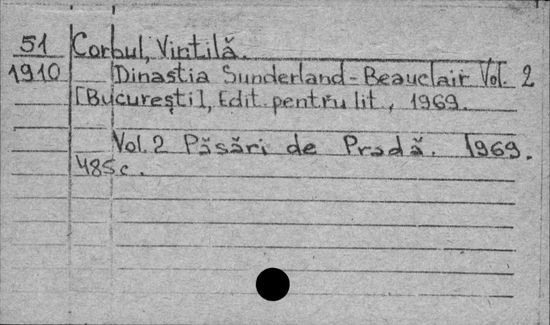 51 Corbul, Vintilă.
1910 Dinastia Sunderland-Beauclair Vol. 2
[Bucureşti], Edit. pentru lit., 1969.
Vol. 2 Păsări de Pradă. 1969.
485c.